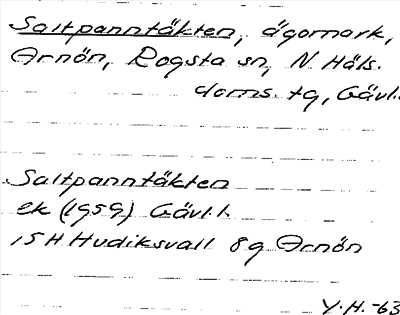 Saltpanntäkten, ägomark,
Arnön, Rogsta sn, N. Häls.
doms. tg, Gävl.
Saltpanntäkten
ek (1959) Gävl.l.
15H Hudiksvall 8g Arnön
Y.H. -63